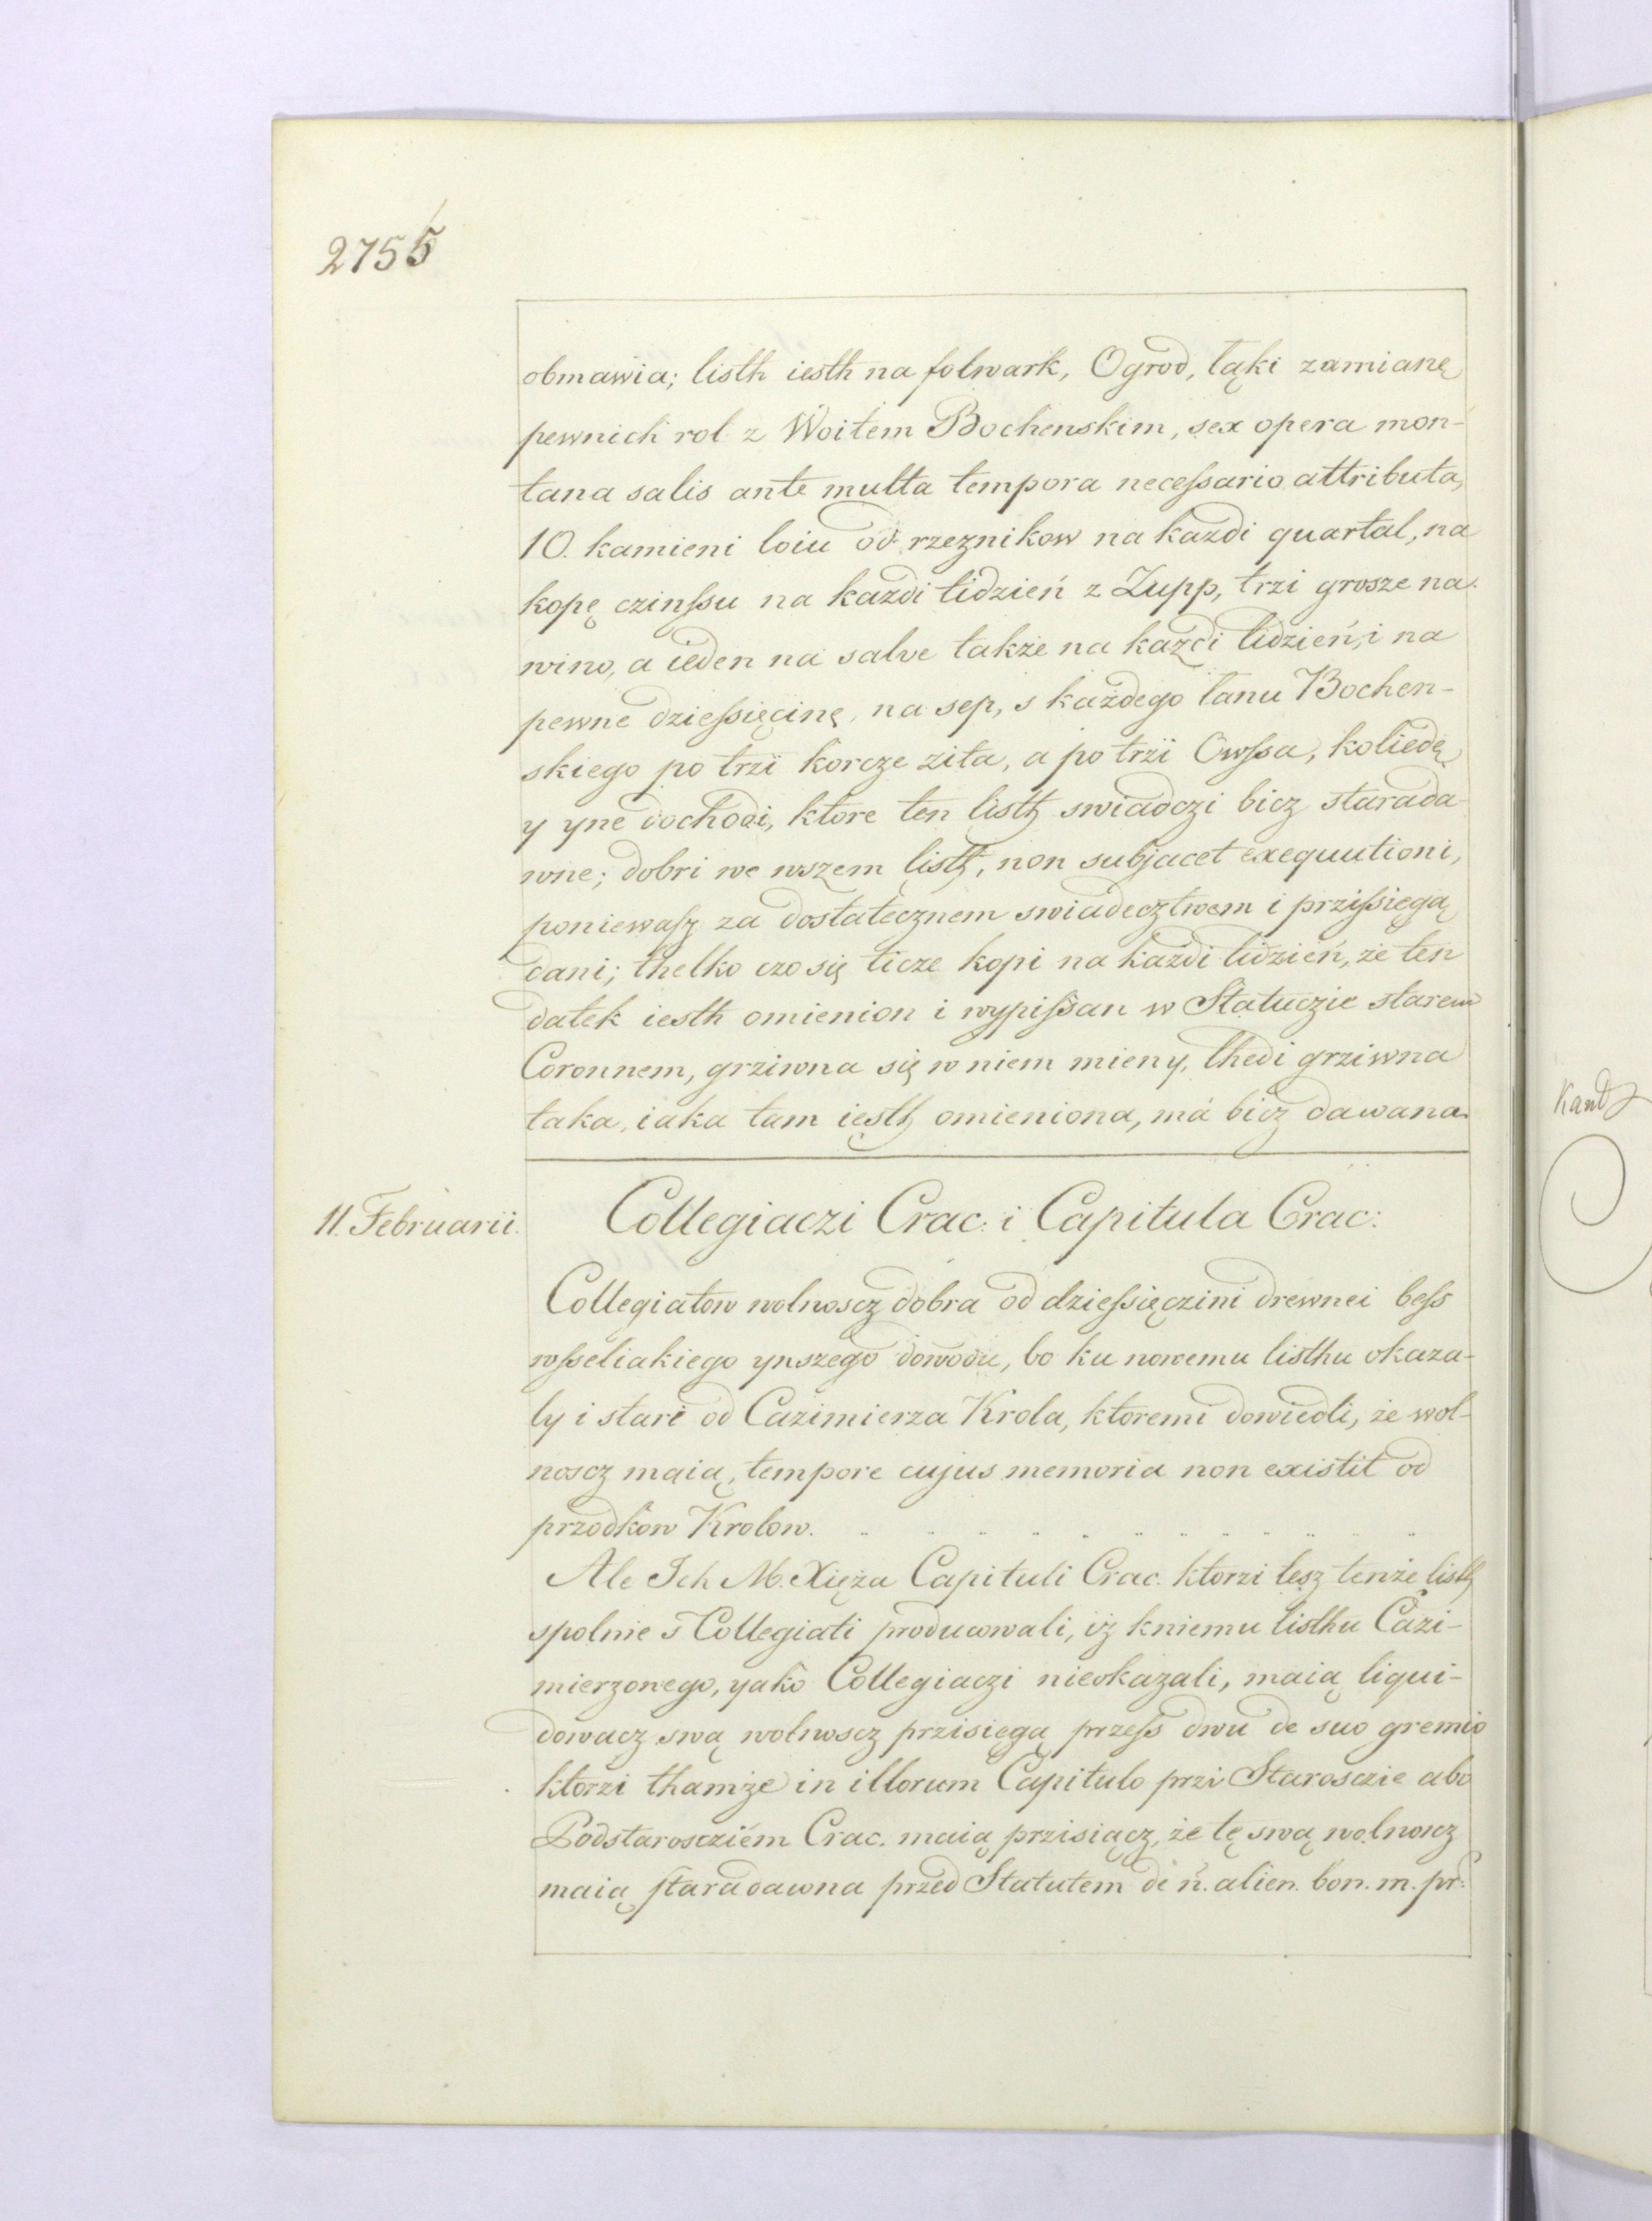 2755
obmawia; listh iesth na folwark, Ogrod, łąki zamianę
pewnich rol z Woitem Bochenskim, sex opera mon-
tana salis ante multa tempora necessario attributa,
10. kamieni loiu od rzeznikow na każdi quartal, na
kopę czinssu na każdi tidzień z Zupp, trzi grosze na
wino, a ieden na salve także na każdi tidzień, i na
pewne dziessięcinę, na sep, s każdego łanu Bochen-
skiego po trzi korcze zita, a po trzi Owssa, koliedę
y yne dochodi, ktore ten listh swiadczi bicz starada-
wne; dobri we wszem listh, non subjacet exequutioni,
poniewasz za dostatecznem swiadecztwem i przissięgą
dani; thelko czo się ticze kopi na każdi tidzień, że ten
datek iesth omienion i wypissan w Statuczie starem
Coronnem, grziwna się w niem mieny, thedi grziwna
taka, iaka tam iesth omieniona, má bicz dawana.
11. Februarii.
Collegiaczi Crac: i Capitula Crac:
Collegiatow wolnoscz dobra od dziessięczini drewnei bess
wsseliakiego ynszego dowodu, bo ku nowemu listhu okaza-
ly i stari od Cazimierza Krola, ktoremi dowiedli, że wol-
noscz maią, tempore cujus memoria non existit od
przodkow Krolow.
Ale Ich M. Xięża Capituli Crac. ktorzi tesz tenże listh
spolnie s Collegiati producowali, iż kniemu listhu Cazi-
mierzowego, yako Collegiaczi nieokazali, maią liqui-
dowacz swą wolnoscz przisięgą przess dwu de suo gremio
ktorzi thamże in illorum Capitulo przi Starosczie abo
Podstaroscziem Crac. maią przisiącz, że tę swą wolnoscz
maią staradawna przed Statutem de n. alien. bon. m. pr: